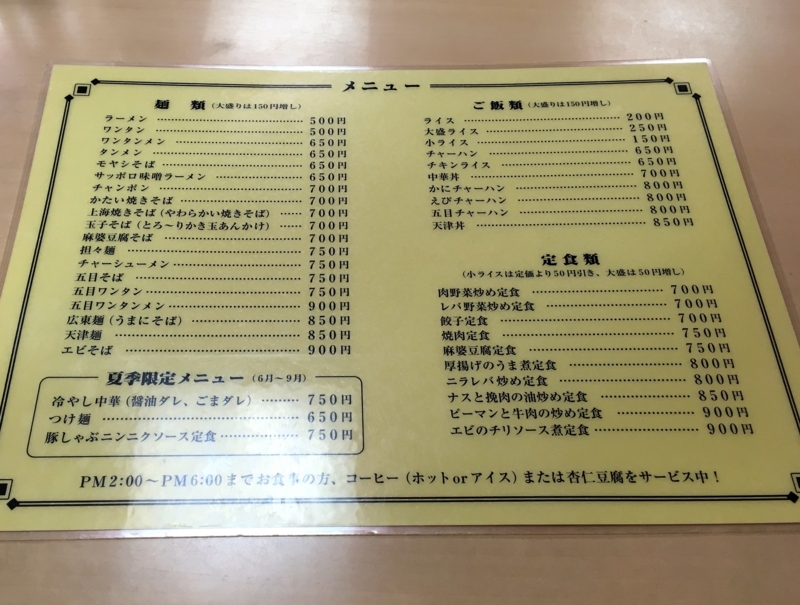 メニュー
麺類（大盛りは150円増し）
ラーメン 500円
ワンタン 500円
ワンタンメン 650円
タンメン 650円
モヤシそば 650円
サッポロ味噌ラーメン 650円
チャンポン 700円
かたい焼きそば 700円
上海焼きそば（やわらかい焼きそば） 700円
玉子そば（とろ〜りかき玉あんかけ） 700円
麻婆豆腐そば 700円
担々麺 750円
チャーシューメン 750円
五目そば 750円
五目ワンタン 750円
五目ワンタンメン 900円
広東麺（うまにそば） 850円
天津麺 850円
エビそば 900円
夏季限定メニュー（6月〜9月）
冷やし中華（醤油ダレ、ごまダレ） 750円
つけ麺 650円
豚しゃぶニンニクソース定食 750円
ご飯類（大盛りは150円増し）
ライス 200円
大盛ライス 250円
小ライス 150円
チャーハン 650円
チキンライス 650円
中華丼 700円
かにチャーハン 800円
えびチャーハン 800円
五目チャーハン 800円
天津丼 850円
定食類
（小ライスは定価より50円引き、大盛は50円増し）
肉野菜炒め定食 700円
レバ野菜炒め定食 700円
餃子定食 700円
焼肉定食 750円
麻婆豆腐定食 750円
厚揚げのうま煮定食 800円
ニラレバ炒め定食 800円
ナスと挽肉の油炒め定食 850円
ピーマンと牛肉の炒め定食 900円
エビのチリソース煮定食 900円
PM2:00〜PM6:00までお食事の方、コーヒー（ホットorアイス）または杏仁豆腐をサービス中！